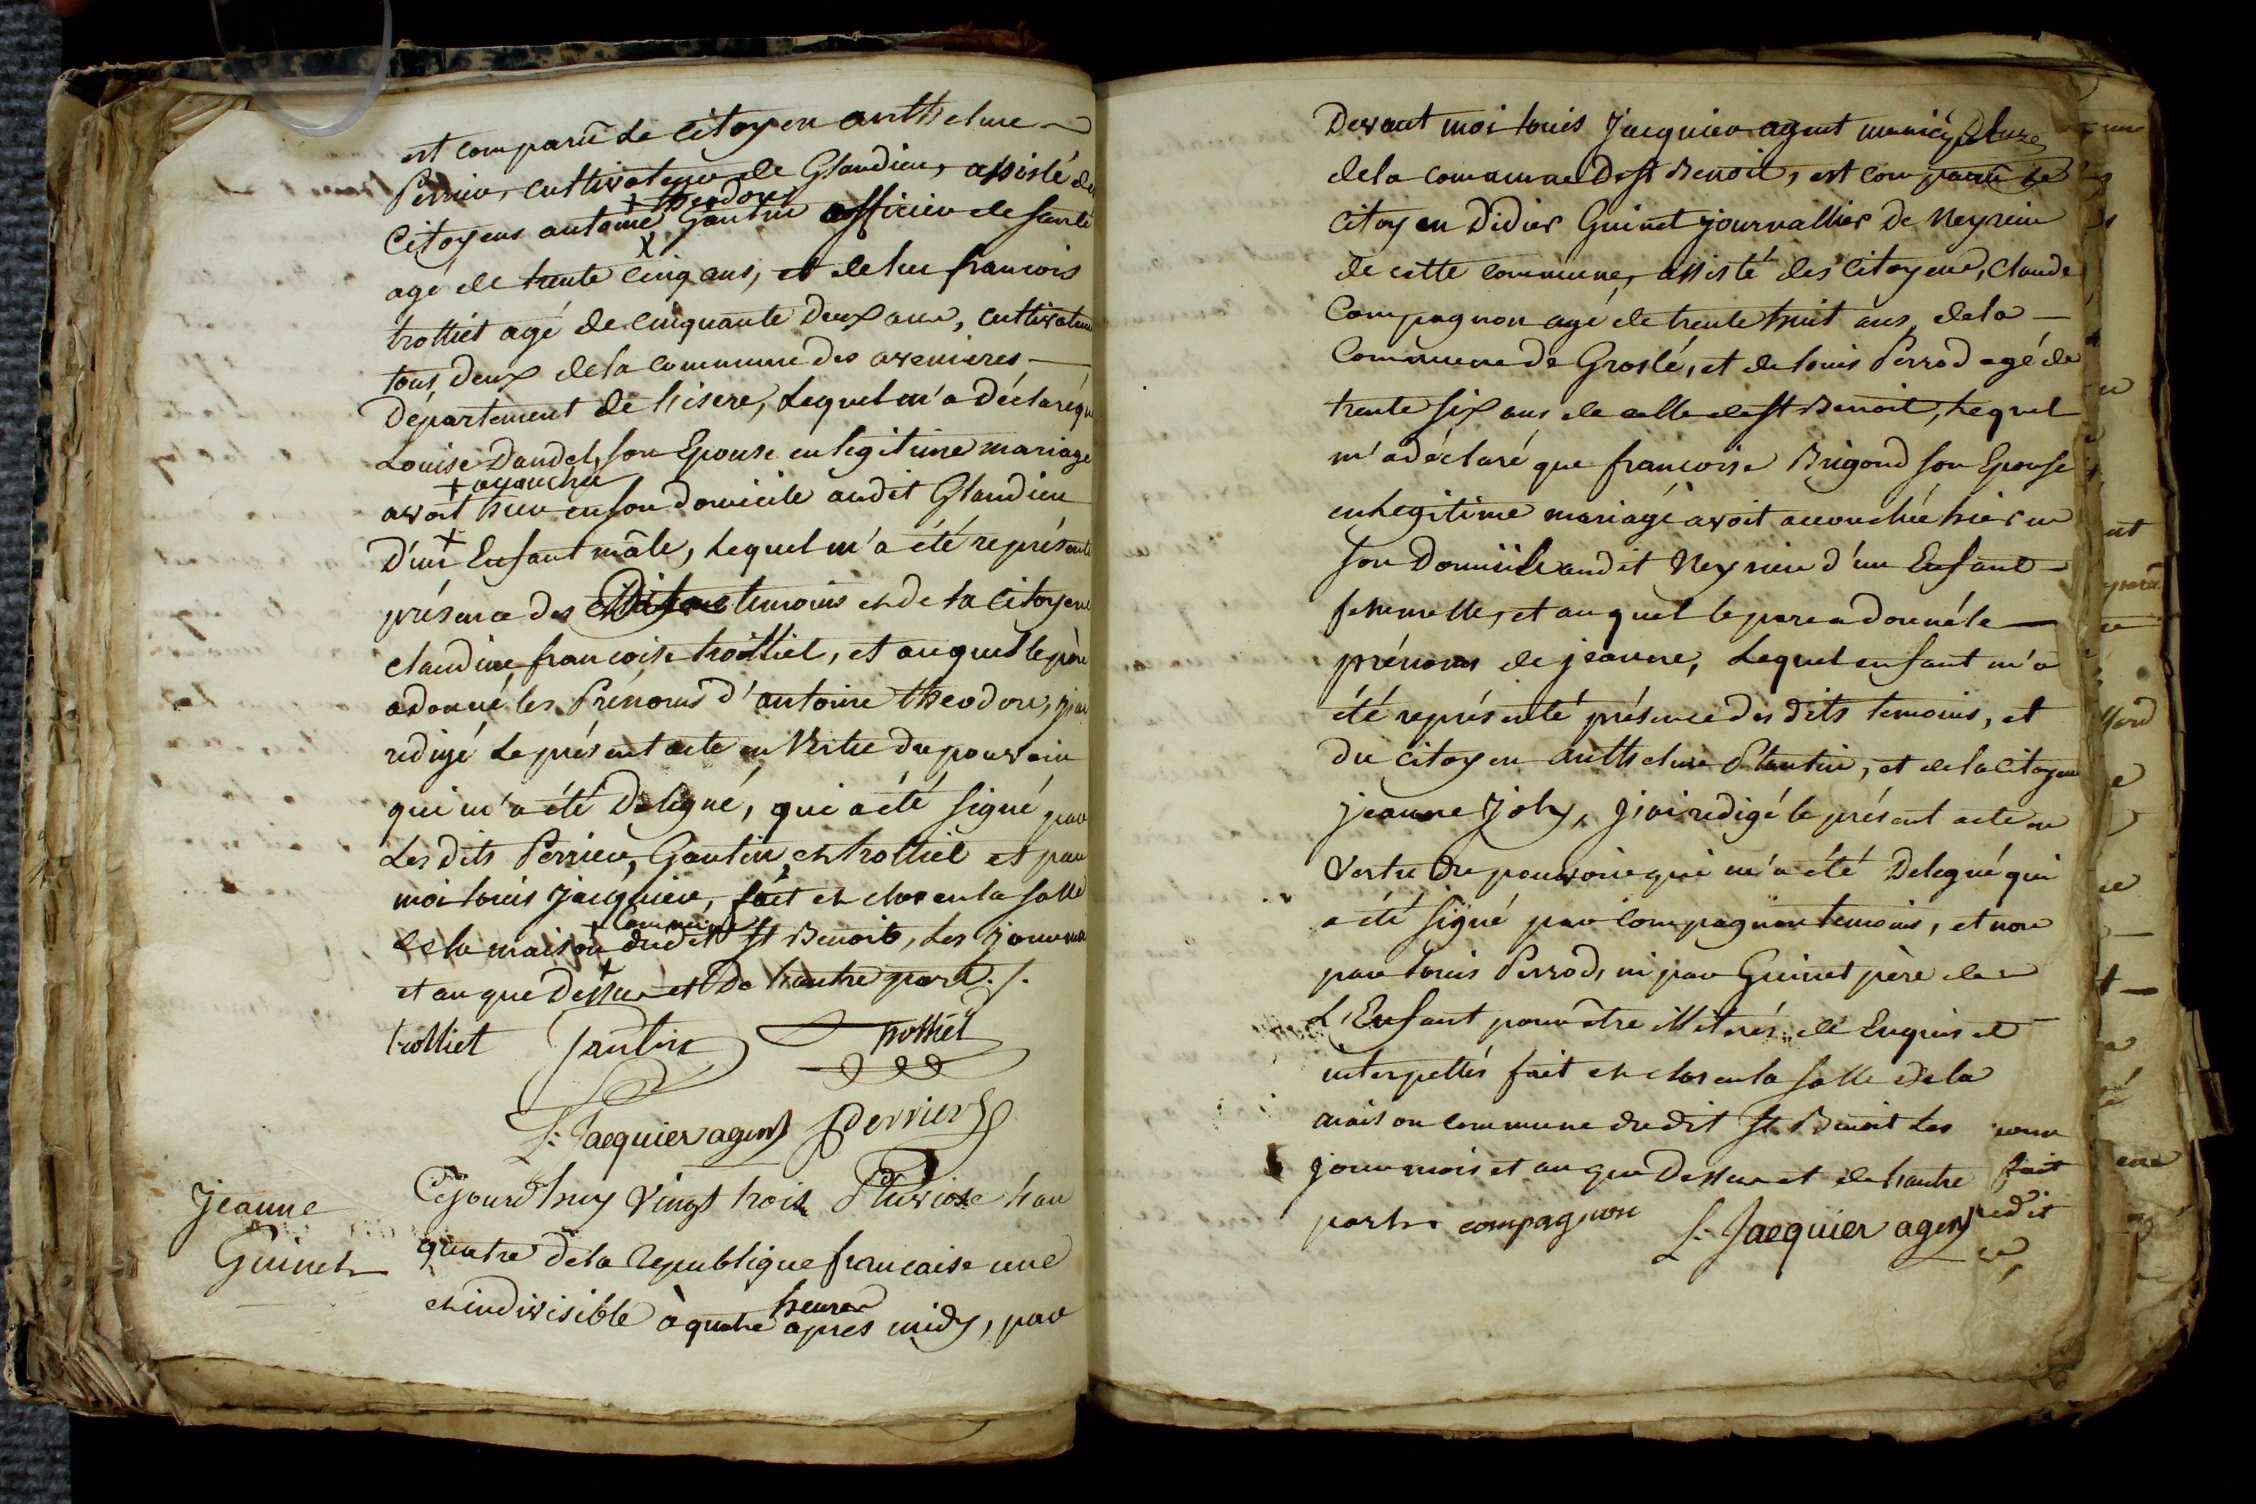 est comparu le citoyen anthelme
Perrier, cultivateur de Glandieu, assisté des
+ theodore
citoyens antoine Gantin officier de santé
agé de trente cinq ans, et de lui francois
trolliet agé de cinquante deux ans, cultivateur
tous deux de la commune des avenieres
Département de l'isere, Lequel m'a déclaré que
Louise Dandel, son Epouse en legitime mariage
+ accouchée
avoit hier en son domicile audit Glandieu
D'un Enfant mâle, Lequel m'a été représenté
présence des temoins et de la citoyene
claudine francoise trolliet, et auquel le père
a donné les Prénoms d'antoine theodore, j'ai
redigé le présent acte en Vertu du pouvoir
qui m'a été Delegué, qui a été signé par
Les dits Perrier, Gantin et trolliet et par
moi Louis Jacquier, fait et clos en la salle
+ Commune
de la maison dudit St Benoit, les jour mois
et an que Dessus et De L'autre part ./.
trolliet Gantin trolliet
L. Jacquier agent Perrier
Jeanne
Guinet
Cejourd'huy vingt trois Pluviose L'an
quatre de la republique francaise une
heures
et indivisible à quatre apres midy, par
Devant moi Louis Jacquier agent municipal
de la commune De St Benoit, est comparu le
citoyen Didier Guinet journallier De Neyrieu
de cette commune, assisté des citoyens, Claude
Compagnon agé de trente huit ans de la
Commune de Groslé, et de Louis Perrod agé de
trente six ans de celle de St Benoit, Lequel
m'a déclaré que francoise Brigond son Epouse
en Legitime mariage avoit accouchée hier en
son Domicile audit Neyrieu d'un Enfant
femmelle, et auquel le pere a donné le
prénoms de jeanne, Lequel enfant m'a
été représenté présence des dits temoins, et
du citoyen anthelme Plantin, et de la citoyene
jeanne Joly, j'ai redigé le présent acte en
Vertu Du pouvoir qui m'a été Delegué qui
a été signé par Compagnon temoins, et non
par Louis Perrod, ni par Guinet père de
L'Enfant pour être illiterés de Enquis et
interpellés fait et clos en la salle de la
maison commune dudit St Benoit Les
jour mois et an que Dessus et de L'autre
part. compagnon L. Jacquier agent